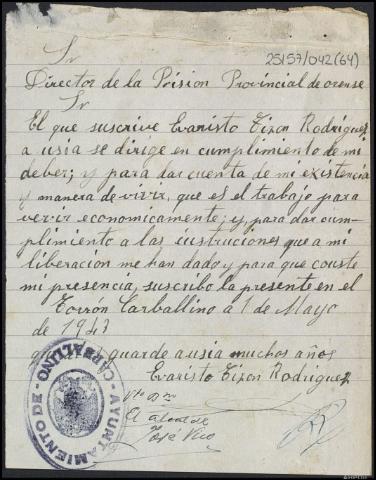 25157/042(64)
Sr
Director de la Prision Provincial de orense
Sr
El que suscrive Evaristo Tizon Rodriguez
a usia se dirige en cumplimiento de mi
deber; y para dar cuenta de mi existencia
y manera de vivir, que es el trabajo para
vervir economicamente; y, para dar cum-
plimiento a las instruciones que a mi
liberacion me han dado y para que conste
mi presencia, suscribo la presente en el
Torrón Carballino a 1 de Mayo
de 1943
guarde a usia muchos años
Evaristo Tizon Rodriguez
Vto Bno
El alcalde
José Vico
AYUNTAMIENTO DE - CARBALLINO -